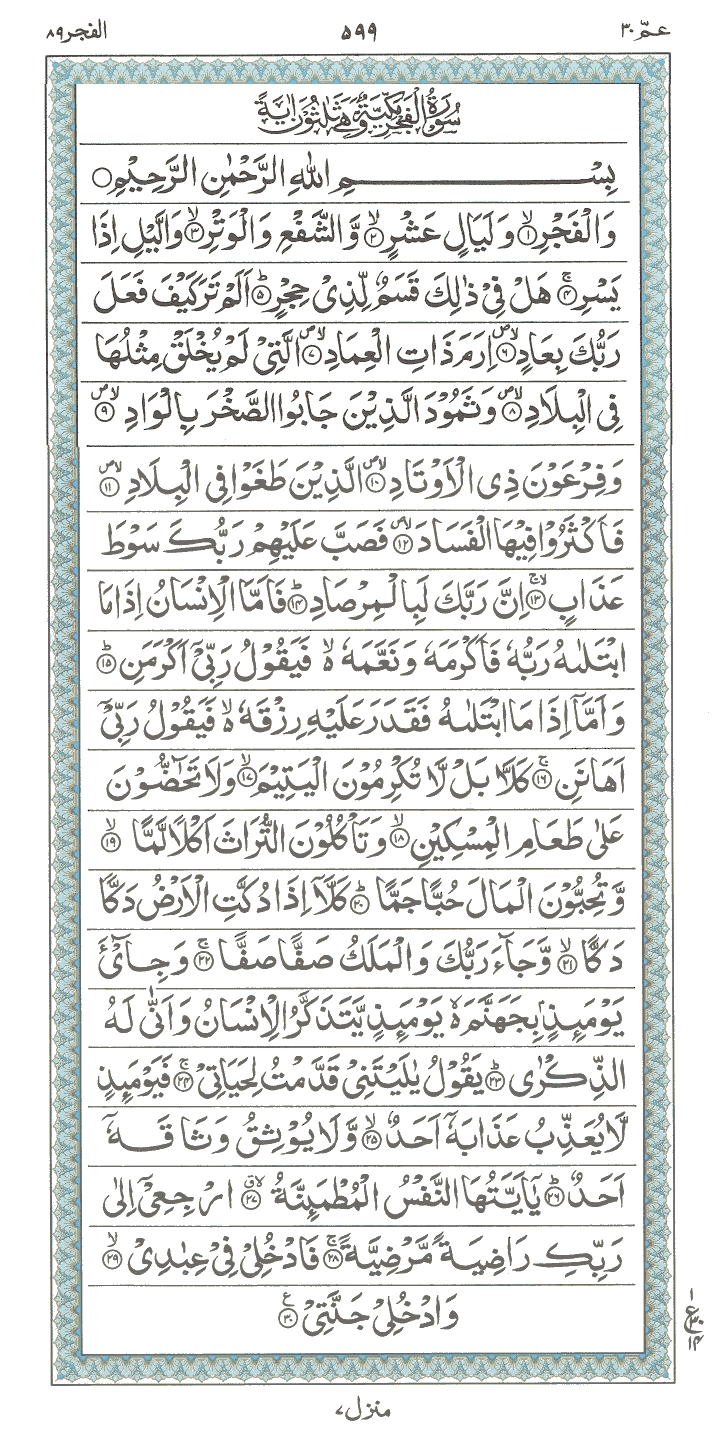 عمّ ٣٠ ٥٩٩ الفجر ٨٩
سُوْرَةُ الْفَجْرِ مَكِّيَّةٌ وَّهِىَ ثَلٰثُوْنَ اٰيَةً
بِسْمِ اللّٰهِ الرَّحْمٰنِ الرَّحِيْمِ
وَالْفَجْرِ ۙ﴿١﴾ وَلَيَالٍ عَشْرٍ ۙ﴿٢﴾ وَّالشَّفْعِ وَالْوَتْرِ ۙ﴿٣﴾ وَالَّيْلِ اِذَا
يَسْرِ ۚ﴿٤﴾ هَلْ فِىْ ذٰلِكَ قَسَمٌ لِّذِىْ حِجْرٍ ؕ﴿٥﴾ اَلَمْ تَرَ كَيْفَ فَعَلَ
رَبُّكَ بِعَادٍ ۪ۙ﴿٦﴾ اِرَمَ ذَاتِ الْعِمَادِ ۪ۙ﴿٧﴾ الَّتِىْ لَمْ يُخْلَقْ مِثْلُهَا
فِى الْبِلَادِ ۪ۙ﴿٨﴾ وَثَمُوْدَ الَّذِيْنَ جَابُوا الصَّخْرَ بِالْوَادِ ۪ۙ﴿٩﴾
وَفِرْعَوْنَ ذِى الْاَوْتَادِ ۪ۙ﴿١٠﴾ الَّذِيْنَ طَغَوْا فِى الْبِلَادِ ۪ۙ﴿١١﴾
فَاَكْثَرُوْا فِيْهَا الْفَسَادَ ۪ۙ﴿١٢﴾ فَصَبَّ عَلَيْهِمْ رَبُّكَ سَوْطَ
عَذَابٍ ۙۚ﴿١٣﴾ اِنَّ رَبَّكَ لَبِالْمِرْصَادِ ؕ﴿١٤﴾ فَاَمَّا الْاِنْسَانُ اِذَا مَا
ابْتَلٰىهُ رَبُّهٗ فَاَكْرَمَهٗ وَنَعَّمَهٗ ۙ۬ فَيَقُوْلُ رَبِّىْۤ اَكْرَمَنِ ؕ﴿١٥﴾
وَاَمَّاۤ اِذَا مَا ابْتَلٰىهُ فَقَدَرَ عَلَيْهِ رِزْقَهٗ ۙ۬ فَيَقُوْلُ رَبِّىْۤ
اَهَانَنِ ۚ﴿١٦﴾ كَلَّا بَلْ لَّا تُكْرِمُوْنَ الْيَتِيْمَ ۙ﴿١٧﴾ وَلَا تَحٰٓضُّوْنَ
عَلٰى طَعَامِ الْمِسْكِيْنِ ۙ﴿١٨﴾ وَتَاْكُلُوْنَ التُّرَاثَ اَكْلًا لَّمًّا ۙ﴿١٩﴾
وَّتُحِبُّوْنَ الْمَالَ حُبًّا جَمًّا ؕ﴿٢٠﴾ كَلَّاۤ اِذَا دُكَّتِ الْاَرْضُ دَكًّا
دَكًّا ۙ﴿٢١﴾ وَّجَآءَ رَبُّكَ وَالْمَلَكُ صَفًّا صَفًّا ۚ﴿٢٢﴾ وَجِایْٓءَ
يَوْمَئِذٍۭ بِجَهَنَّمَ ۬ۙ يَوْمَئِذٍ يَّتَذَكَّرُ الْاِنْسَانُ وَاَنّٰى لَهُ
الذِّكْرٰى ؕ﴿٢٣﴾ يَقُوْلُ يٰلَيْتَنِىْ قَدَّمْتُ لِحَيَاتِىْ ۚ﴿٢٤﴾ فَيَوْمَئِذٍ
لَّا يُعَذِّبُ عَذَابَهٗۤ اَحَدٌ ۙ﴿٢٥﴾ وَّلَا يُوْثِقُ وَثَاقَهٗۤ
اَحَدٌ ؕ﴿٢٦﴾ يٰۤاَيَّتُهَا النَّفْسُ الْمُطْمَئِنَّةُ ۙ﴿٢٧﴾ ارْجِعِىْۤ اِلٰى
رَبِّكِ رَاضِيَةً مَّرْضِيَّةً ۚ﴿٢٨﴾ فَادْخُلِىْ فِىْ عِبٰدِىْ ۙ﴿٢٩﴾
وَادْخُلِىْ جَنَّتِىْ ﴿٣٠﴾
١
ع ٣٠
١٤
منزل ٧